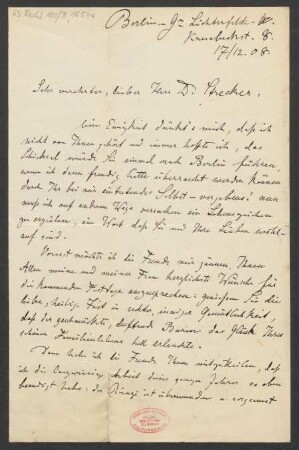 Berlin – Gr. Lichterfelde – W.
Knesebeckst. 8.
17/12. 08.
Sehr verehrter, lieber Herr Dr. Strecker,
Eine Ewigkeit dünkt's mich, daß ich
nicht von Ihnen gehört und immer hoffte ich, das
Schicksal würde Sie einmal nach Berlin führen,
wenn ich denn freudig hätte überrascht werden können
durch Ihr bei mir eintretendes Selbst – vergebens! nun
muß ich auf andrem Wege versuchen ein Lebenszeichen
zu erzielen, ein Wort daß Sie und Ihre Lieben wohl-
auf sind.
Vorerst möchte ich die Freude mir gönnen, Ihnen
Allen meine und meiner Frau herzlichste Wünsche für
die kommenden Festtage auszusprechen: genießen Sie die
liebe, heilige Zeit in rechter, inniger Gemütlichkeit,
daß der geschmückte, duftende Baum das Glück Ihres
schönen Familienlebens hell erleuchte.
Dann habe ich die Freude Ihnen mitzuteilen, daß
ich die langwierige Arbeit eines ganzen Jahres so eben
beendigt habe: die Ränzi ist überwunden u. vorgemerkt